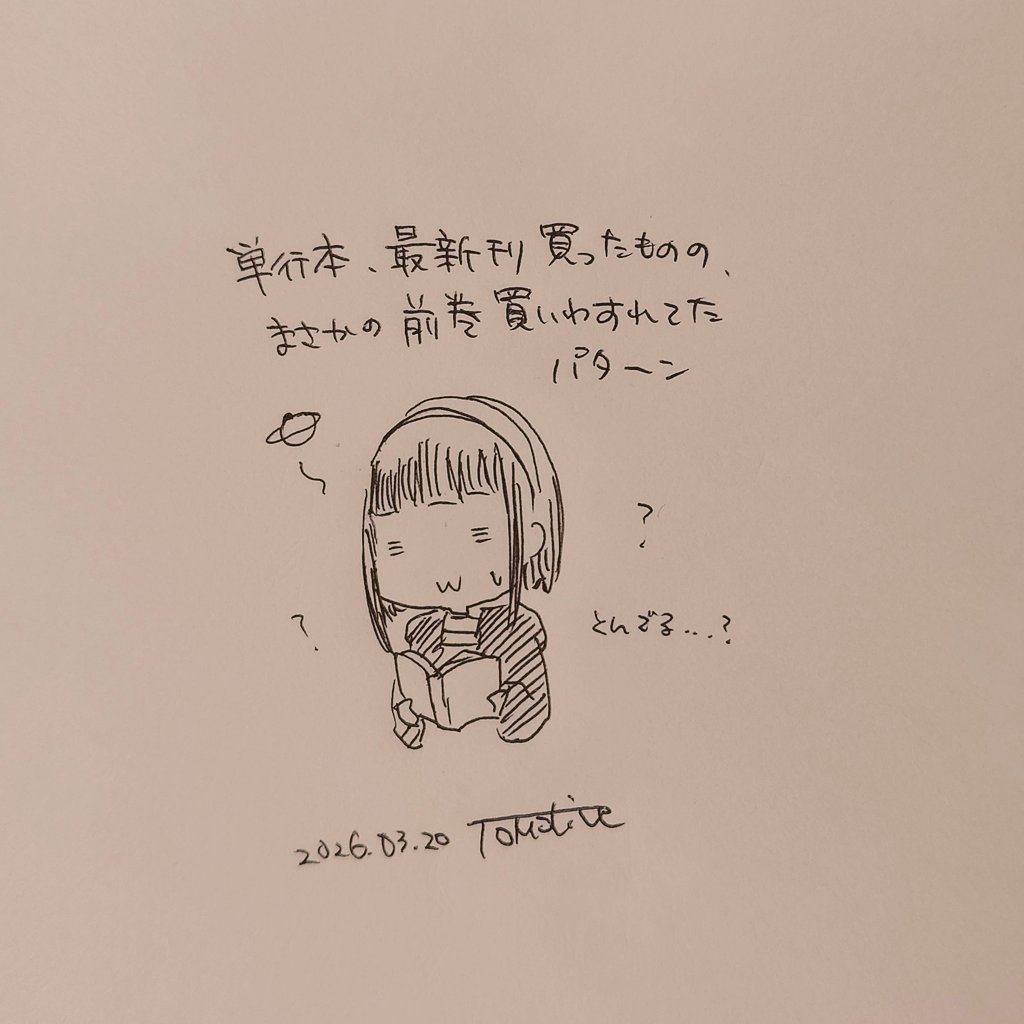 単行本、最新刊買ったものの、
まさかの前巻買いわすれてた
パターン
?
?
とんでる...?
2026.03.20 Tomotive